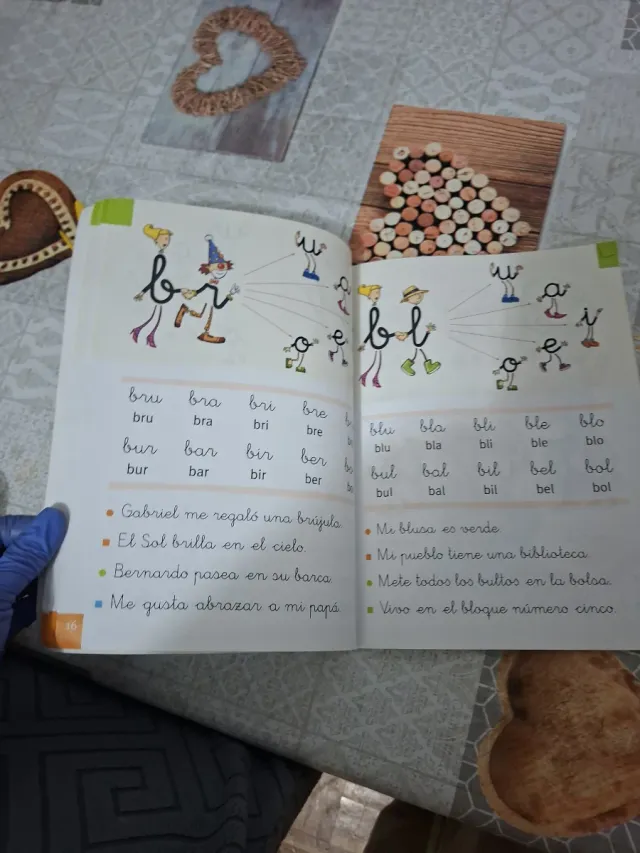 b r
u
o
e
bru bra bri bre
bru bra bri bre
bur bar bir ber
bur bar bir ber
Gabriel me regaló una brújula.
El Sol brilla en el cielo.
Bernardo pasea en su barca.
Me gusta abrazar a mi papá.
16
b l
u
a
i
e
o
blu bla bli ble blo
blu bla bli ble blo
bul bal bil bel bol
bul bal bil bel bol
Mi blusa es verde.
Mi pueblo tiene una biblioteca.
Mete todos los bultos en la bolsa.
Vivo en el bloque número cinco.